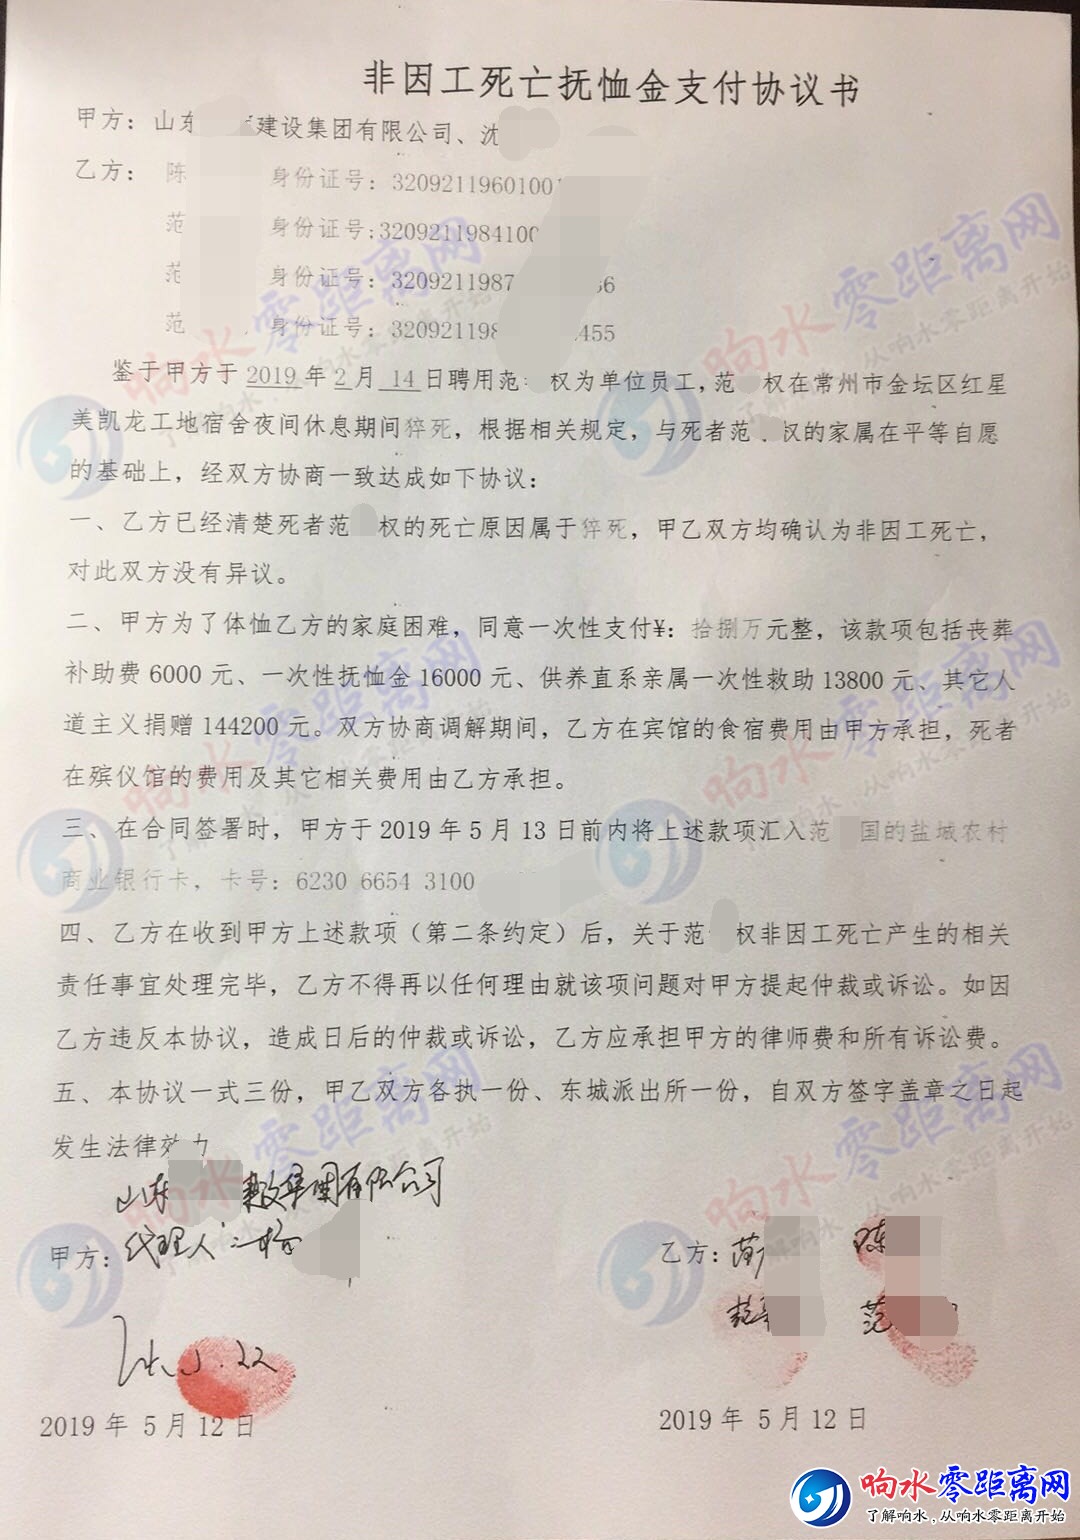 非因工死亡抚恤金支付协议书
甲方：山东 建设集团有限公司、沈
乙方： 陈 身份证号：32092119601001
范 身份证号:3209211984100
范 身份证号：3209211987 66
范 身份证号：320921198 455
鉴于甲方于 2019 年 2 月 14 日聘用范 权为单位员工，范 权在常州市金坛区红星
美凯龙工地宿舍夜间休息期间猝死，根据相关规定，与死者范 权的家属在平等自愿
的基础上，经双方协商一致达成如下协议：
一、乙方已经清楚死者范 权的死亡原因属于猝死，甲乙双方均确认为非因工死亡，
对此双方没有异议。
二、甲方为了体恤乙方的家庭困难，同意一次性支付¥：拾捌万元整，该款项包括丧葬
补助费 6000 元、一次性抚恤金 16000 元、供养直系亲属一次性救助 13800 元、其它人
道主义捐赠 144200 元。双方协商调解期间，乙方在宾馆的食宿费用由甲方承担，死者
在殡仪馆的费用及其它相关费用由乙方承担。
三、在合同签署时，甲方于 2019 年 5 月 13 日前内将上述款项汇入范 国的盐城农村
商业银行卡，卡号：6230 6654 3100
四、乙方在收到甲方上述款项（第二条约定）后，关于范 权非因工死亡产生的相关
责任事宜处理完毕，乙方不得再以任何理由就该项问题对甲方提起仲裁或诉讼。如因
乙方违反本协议，造成日后的仲裁或诉讼，乙方应承担甲方的律师费和所有诉讼费。
五、本协议一式三份，甲乙双方各执一份、东城派出所一份，自双方签字盖章之日起
发生法律效力
山东 集团有限公司
甲方：代理人：
乙方：范 陈
范 范
2019 年 5 月 12 日
2019 年 5 月 12 日
响水零距离网
了解响水，从响水零距离开始